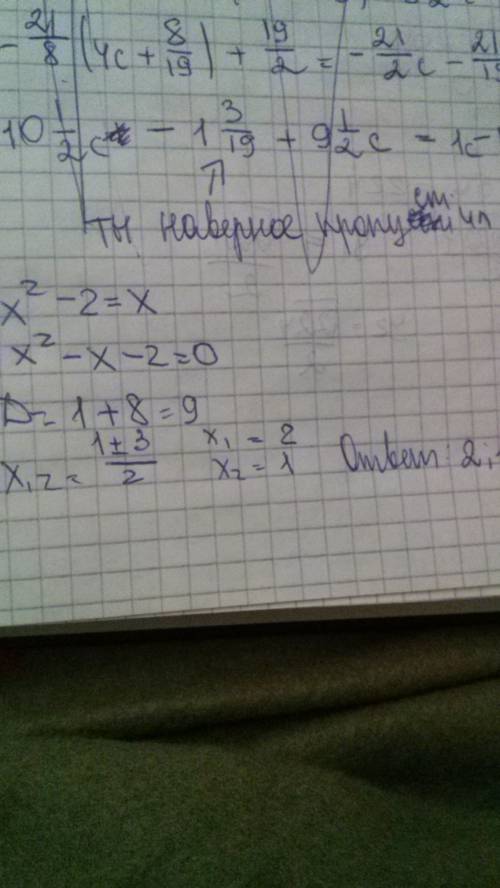 - 21/8 (4c + 8/19) + 19/2 = - 21/2 c - 21/19
10 1/2 c - 1 3/19 + 9 1/2 c = 1c -
ТН наверное
x² - 2 = x
x² - x - 2 = 0
D = 1 + 8 = 9
x₁₂ = (1 ± 3)/2 x₁ = 2
x₂ = 1 Ответ: 2;